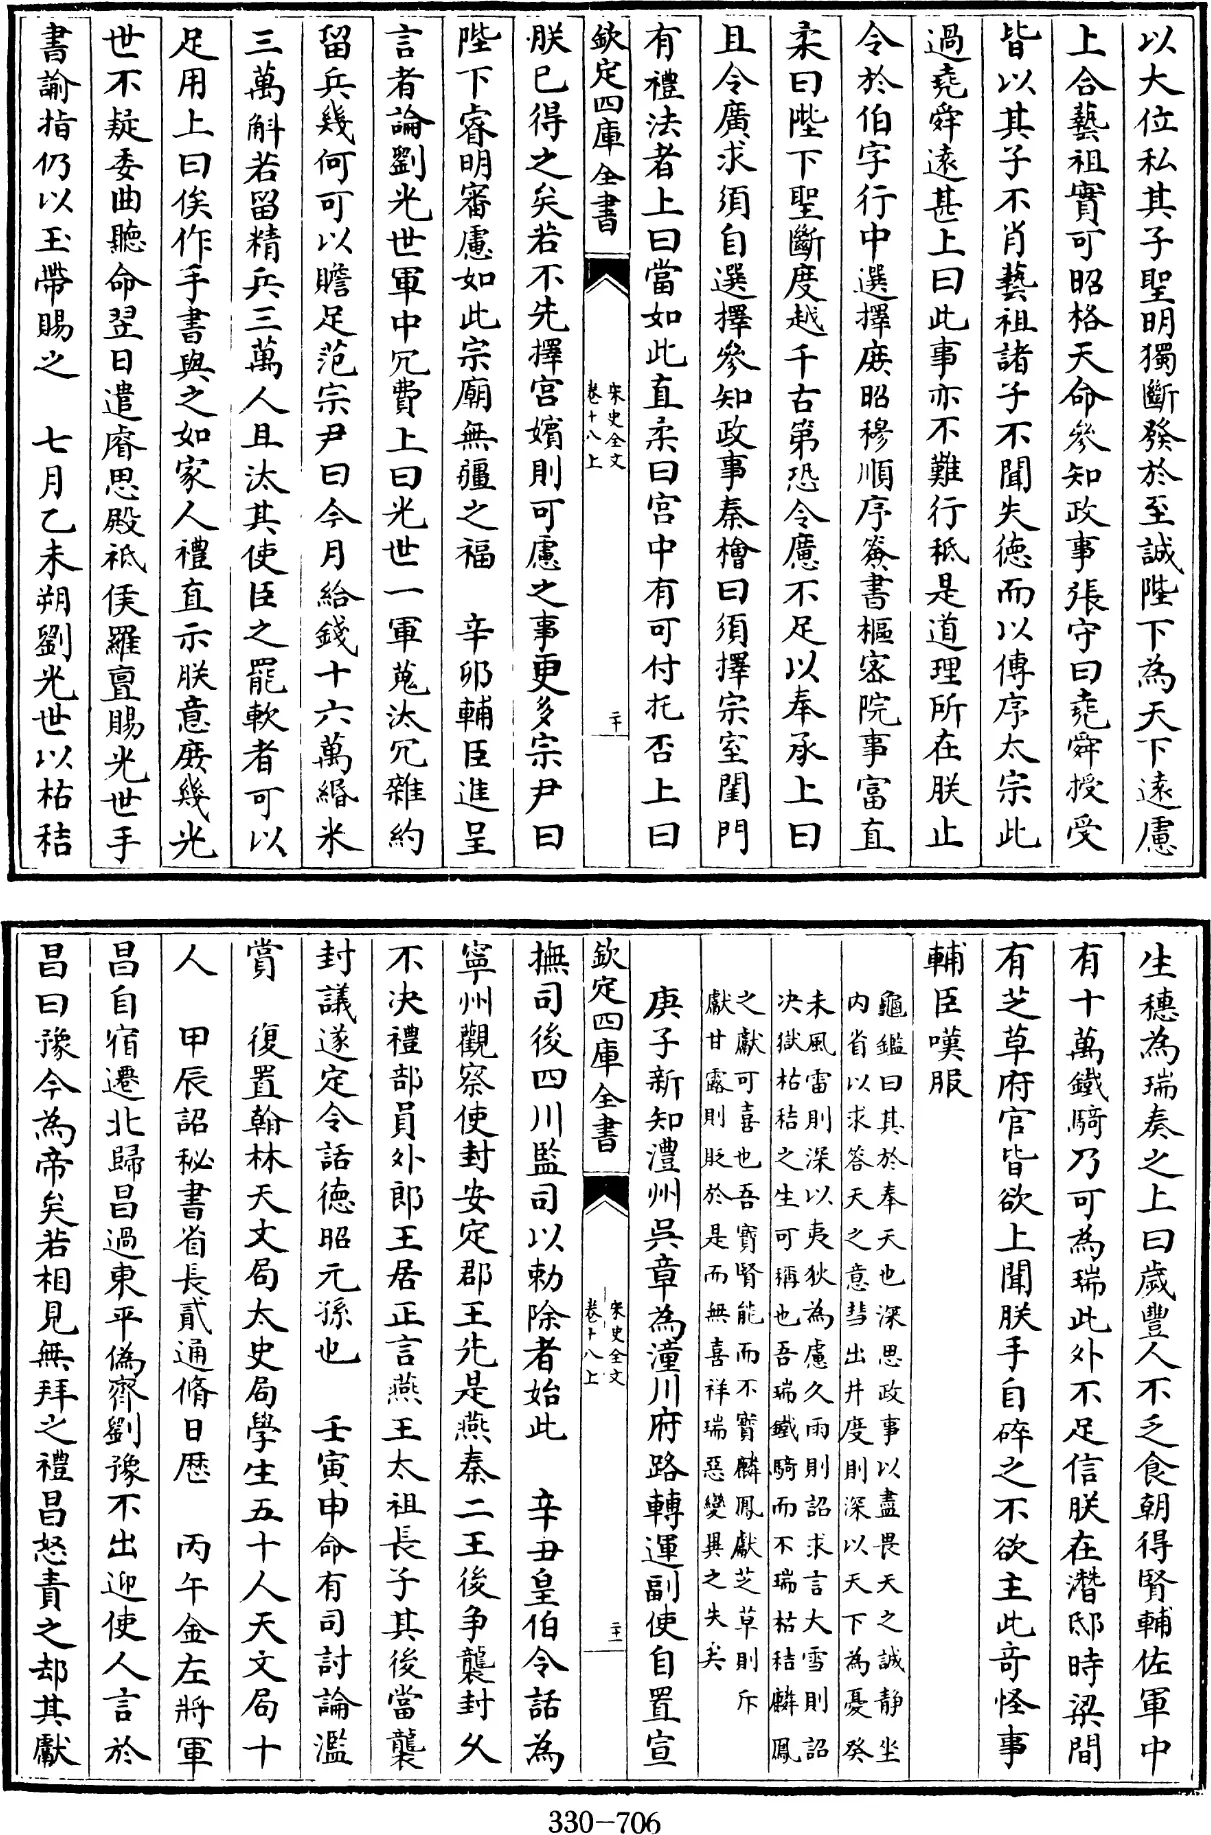 以大位私其子聖明獨斷發於至誠陛下為天下遠慮
上合藝祖實可昭格天命參知政事張守曰堯舜授受
皆以其子不肖藝祖諸子不聞失德而以傳序太宗此
過堯舜遠甚上曰此事亦不難行秪是道理所在朕止
令於伯字行中選擇庻昭穆順序簽書樞密院事富直
柔曰陛下聖斷度越千古第恐令廣不足以奉承上曰
且令廣求須自選擇參知政事秦檜曰須擇宗室閨門
有禮法者上曰當如此直柔曰宮中有可付托否上曰
欽定四庫全書
宋史全文
卷十八上
二十
朕已得之矣若不先擇宮嬪則可慮之事更多宗尹曰
陛下睿明審慮如此宗廟無疆之福　辛卯輔臣進呈
言者論劉光世軍中冗費上曰光世一軍蒐汰冗雜約
留兵幾何可以贍足范宗尹曰今月給錢十六萬緡米
三萬斛若留精兵三萬人且汰其使臣之罷軟者可以
足用上曰俟作手書與之如家人禮直示朕意庻幾光
世不疑委曲聽命翌日遣睿思殿祗候羅亶賜光世手
書諭指仍以玉帶賜之　七月乙未朔劉光世以枯秸
生穗為瑞奏之上曰歲豐人不乏食朝得賢輔佐軍中
有十萬鐵騎乃可為瑞此外不足信朕在潛邸時梁間
有芝草府官皆欲上聞朕手自碎之不欲主此奇怪事
輔臣嘆服
龜鑑曰其於奉天也深思政事以盡畏天之誠靜坐
内省以求答天之意彗出井度則深以天下為憂癸
未風雷則深以夷狄為慮久雨則詔求言大雪則詔
决獄枯秸之生可稱也吾瑞鐵騎而不瑞枯秸麟鳳
之獻可喜也吾寶賢能而不寶麟鳳獻芝草則斥
獻甘露則貶於是而無喜祥瑞惡變異之失矣
庚子新知澧州吳章為潼川府路轉運副使自置宣
欽定四庫全書
宋史全文
卷十八上
二十一
撫司後四川監司以勅除者始此　辛丑皇伯令話為
寧州觀察使封安定郡王先是燕秦二王後争襲封久
不决禮部員外郎王居正言燕王太祖長子其後當襲
封議遂定令話德昭元孫也　壬寅申命有司討論濫
賞　復置翰林天文局太史局學生五十人天文局十
人　甲辰詔秘書省長貳通脩日厯　丙午金左將軍
昌自宿遷北歸昌過東平偽齊劉豫不出迎使人言於
昌曰豫今為帝矣若相見無拜之禮昌怒責之却其獻
330-706